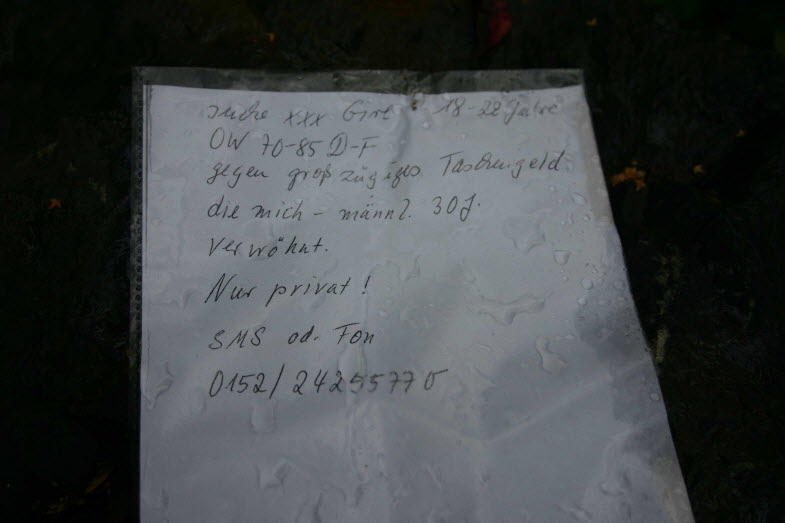 suche xxx Girl 18-22 Jahre
OW 70-85 D-F
gegen großzügiges Taschengeld
die mich - männl. 30J.
verwöhnt.
Nur privat!
SMS od. Fon
0152/24255770